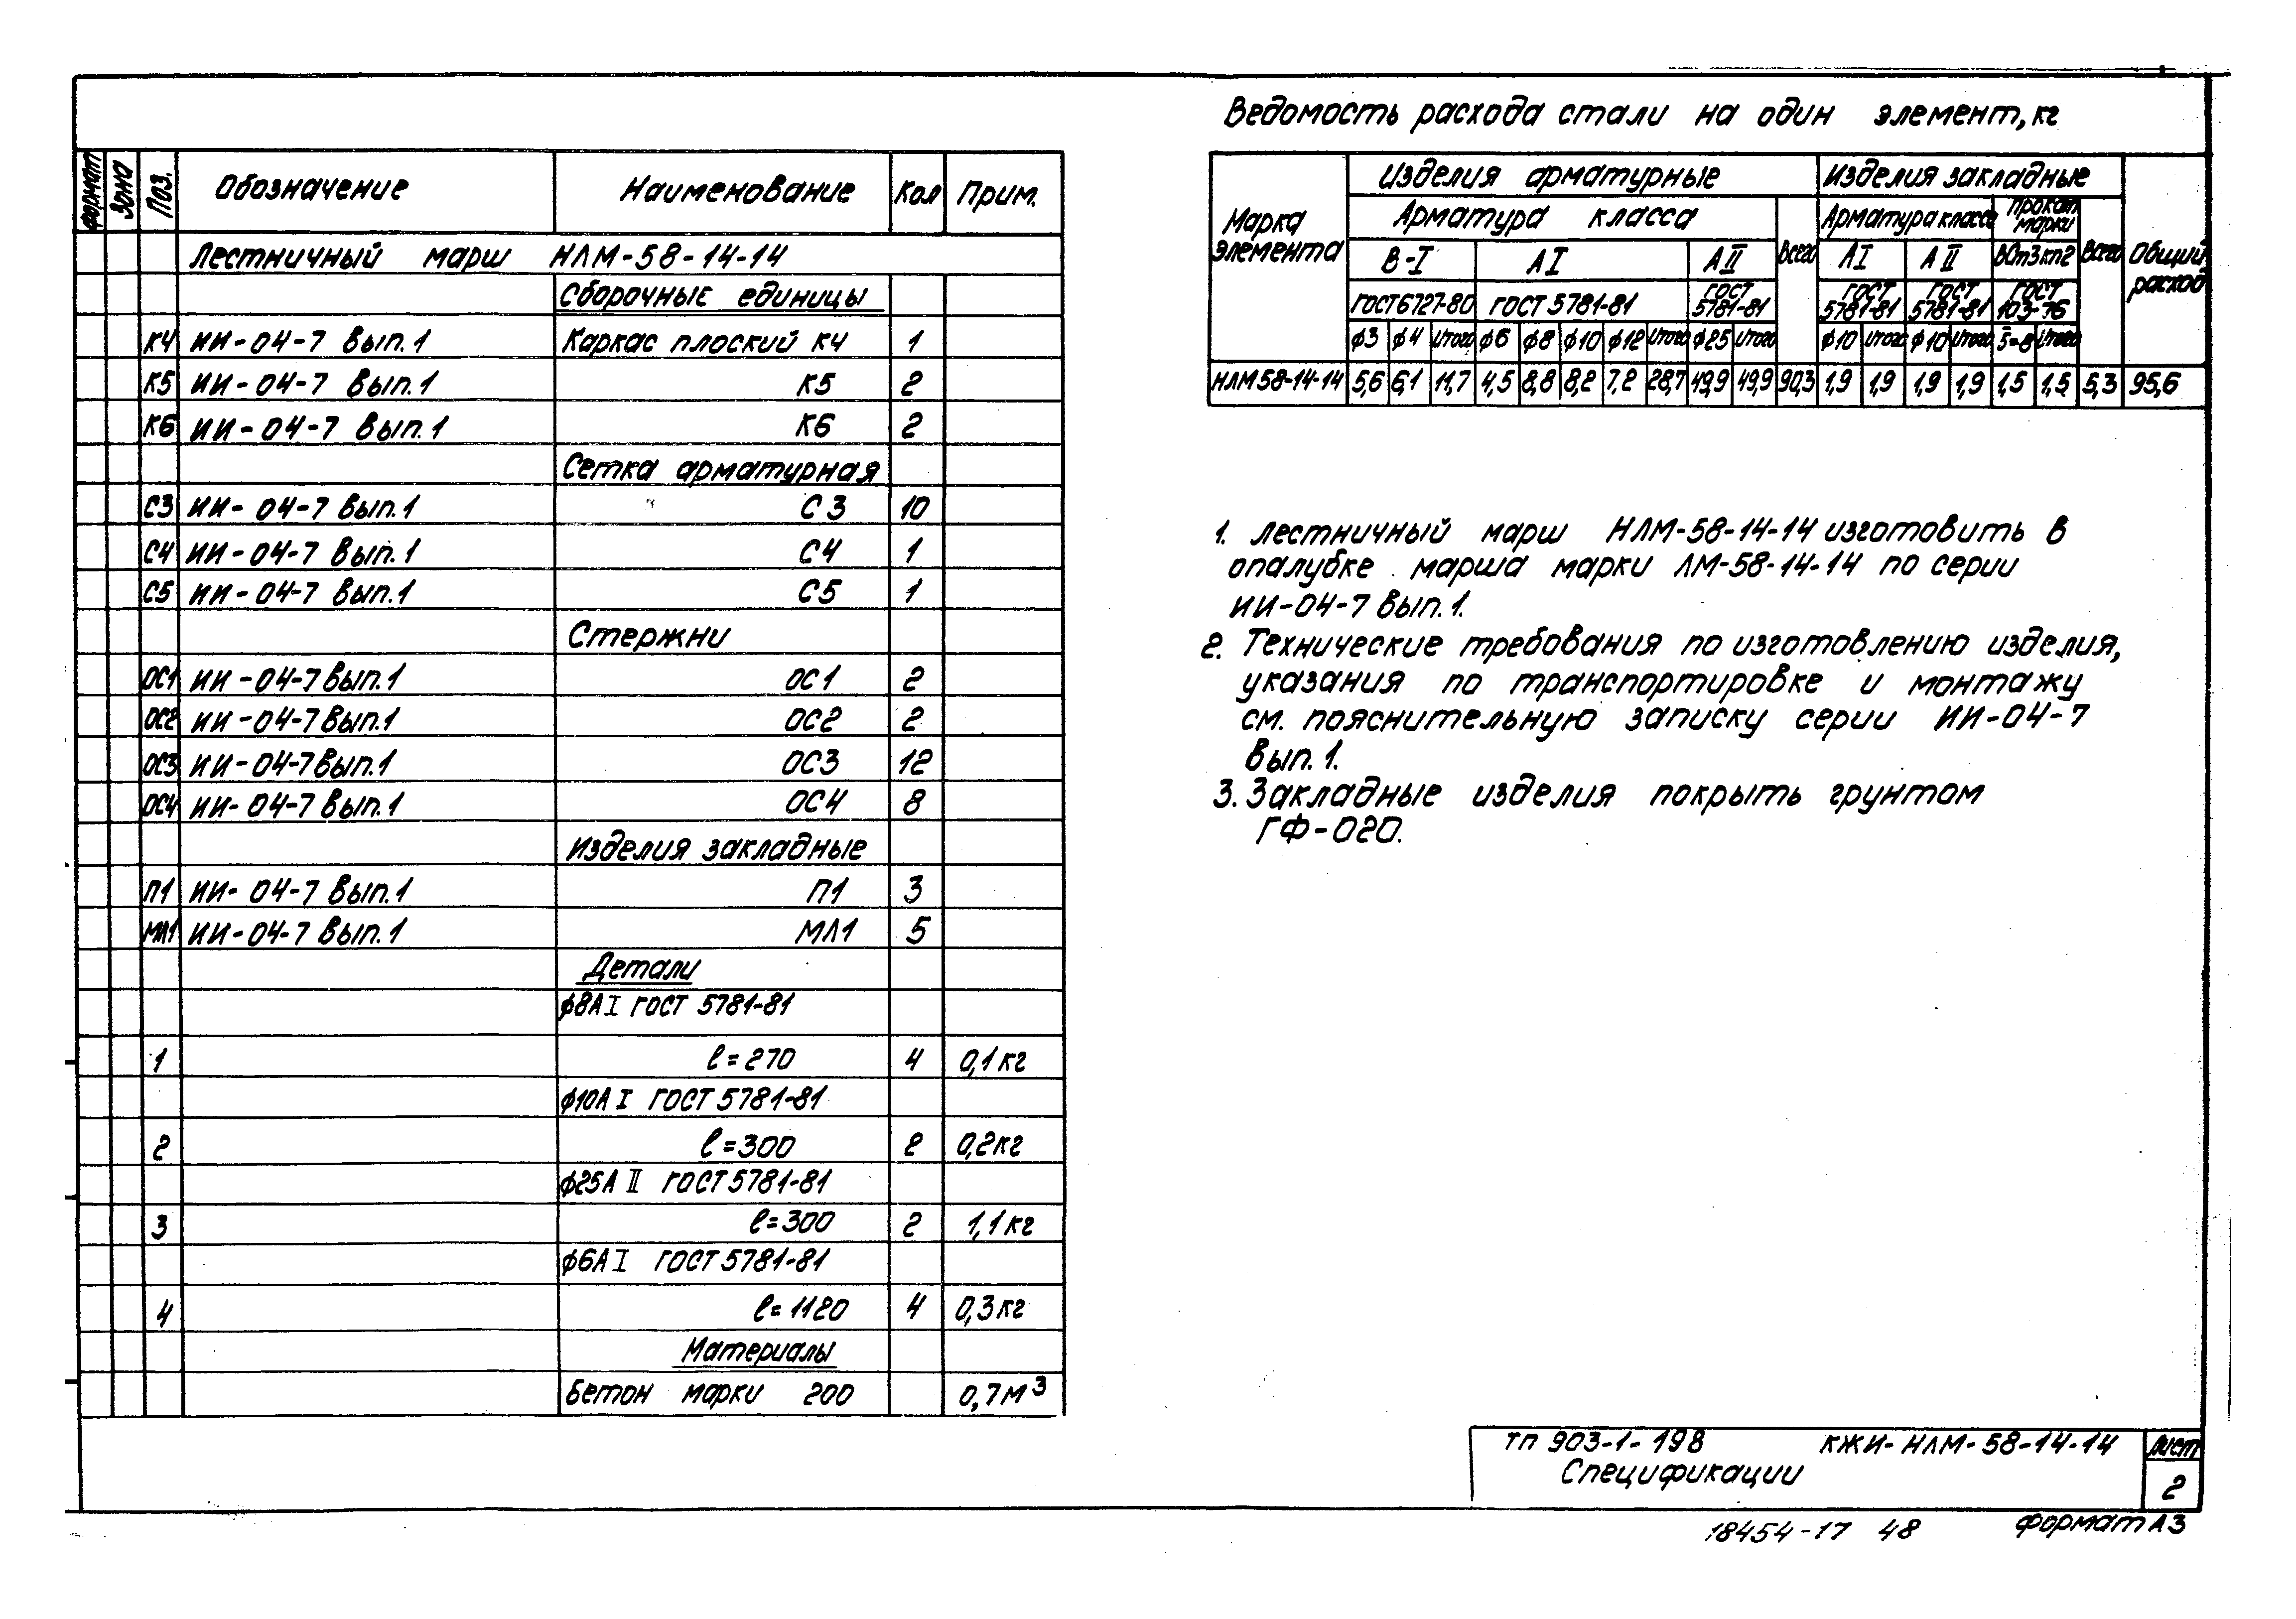 Формат Зона Поз. Обозначение Наименование Кол Прим.
Лестничный марш НЛМ-58-14-14
Сборочные единицы
К4 ИИ-04-7 Вып.1 Каркас плоский К4 1
К5 ИИ-04-7 Вып.1 К5 2
К6 ИИ-04-7 Вып.1 К6 2
Сетка арматурная
С3 ИИ-04-7 Вып.1 С3 10
С4 ИИ-04-7 Вып.1 С4 1
С5 ИИ-04-7 Вып.1 С5 1
Стержни
ОС1 ИИ-04-7 Вып.1 ОС1 2
ОС2 ИИ-04-7 Вып.1 ОС2 2
ОС3 ИИ-04-7 Вып.1 ОС3 12
ОС4 ИИ-04-7 Вып.1 ОС4 8
Изделия закладные
П1 ИИ-04-7 Вып.1 П1 3
МЛ1 ИИ-04-7 Вып.1 МЛ1 5
Детали
ф8АI ГОСТ 5781-81
1 ℓ=270 4 0,1кг
ф10АI ГОСТ 5781-81
2 ℓ=300 2 0,2кг
ф25АII ГОСТ 5781-81
3 ℓ=300 2 1,1кг
ф6АI ГОСТ 5781-81
4 ℓ=1120 4 0,3кг
Материалы
Бетон марки 200 0,7м³
Ведомость расхода стали на один элемент, кг
Марка элемента Изделия арматурные Изделия закладные Общий расход
Арматура класса Всего Арматура класса Прокат марки Всего
В-I АI АII АI АII ВСт3кп2
ГОСТ 6727-80 ГОСТ 5781-81 ГОСТ 5781-81 ГОСТ 5781-81 ГОСТ 5781-81 ГОСТ 103-76
ф3 ф4 Итого ф6 ф8 ф10 ф12 Итого ф25 Итого ф10 Итого ф10 Итого δ=8 Итого
НЛМ58-14-14 5,6 6,1 11,7 4,5 8,8 8,2 7,2 28,7 49,9 49,9 90,3 1,9 1,9 1,9 1,9 1,5 1,5 5,3 95,6
1. Лестничный марш НЛМ-58-14-14 изготовить в
опалубке марша марки ЛМ-58-14-14 по серии
ИИ-04-7 Вып.1.
2. Технические требования по изготовлению изделия,
указания по транспортировке и монтажу
см. пояснительную записку серии ИИ-04-7
Вып. 1.
3. Закладные изделия покрыть грунтом
ГФ-020.
ТП 903-1-198 КЖИ-НЛМ-58-14-14 Лист
Спецификации 2
18454-17 48 Формат А3